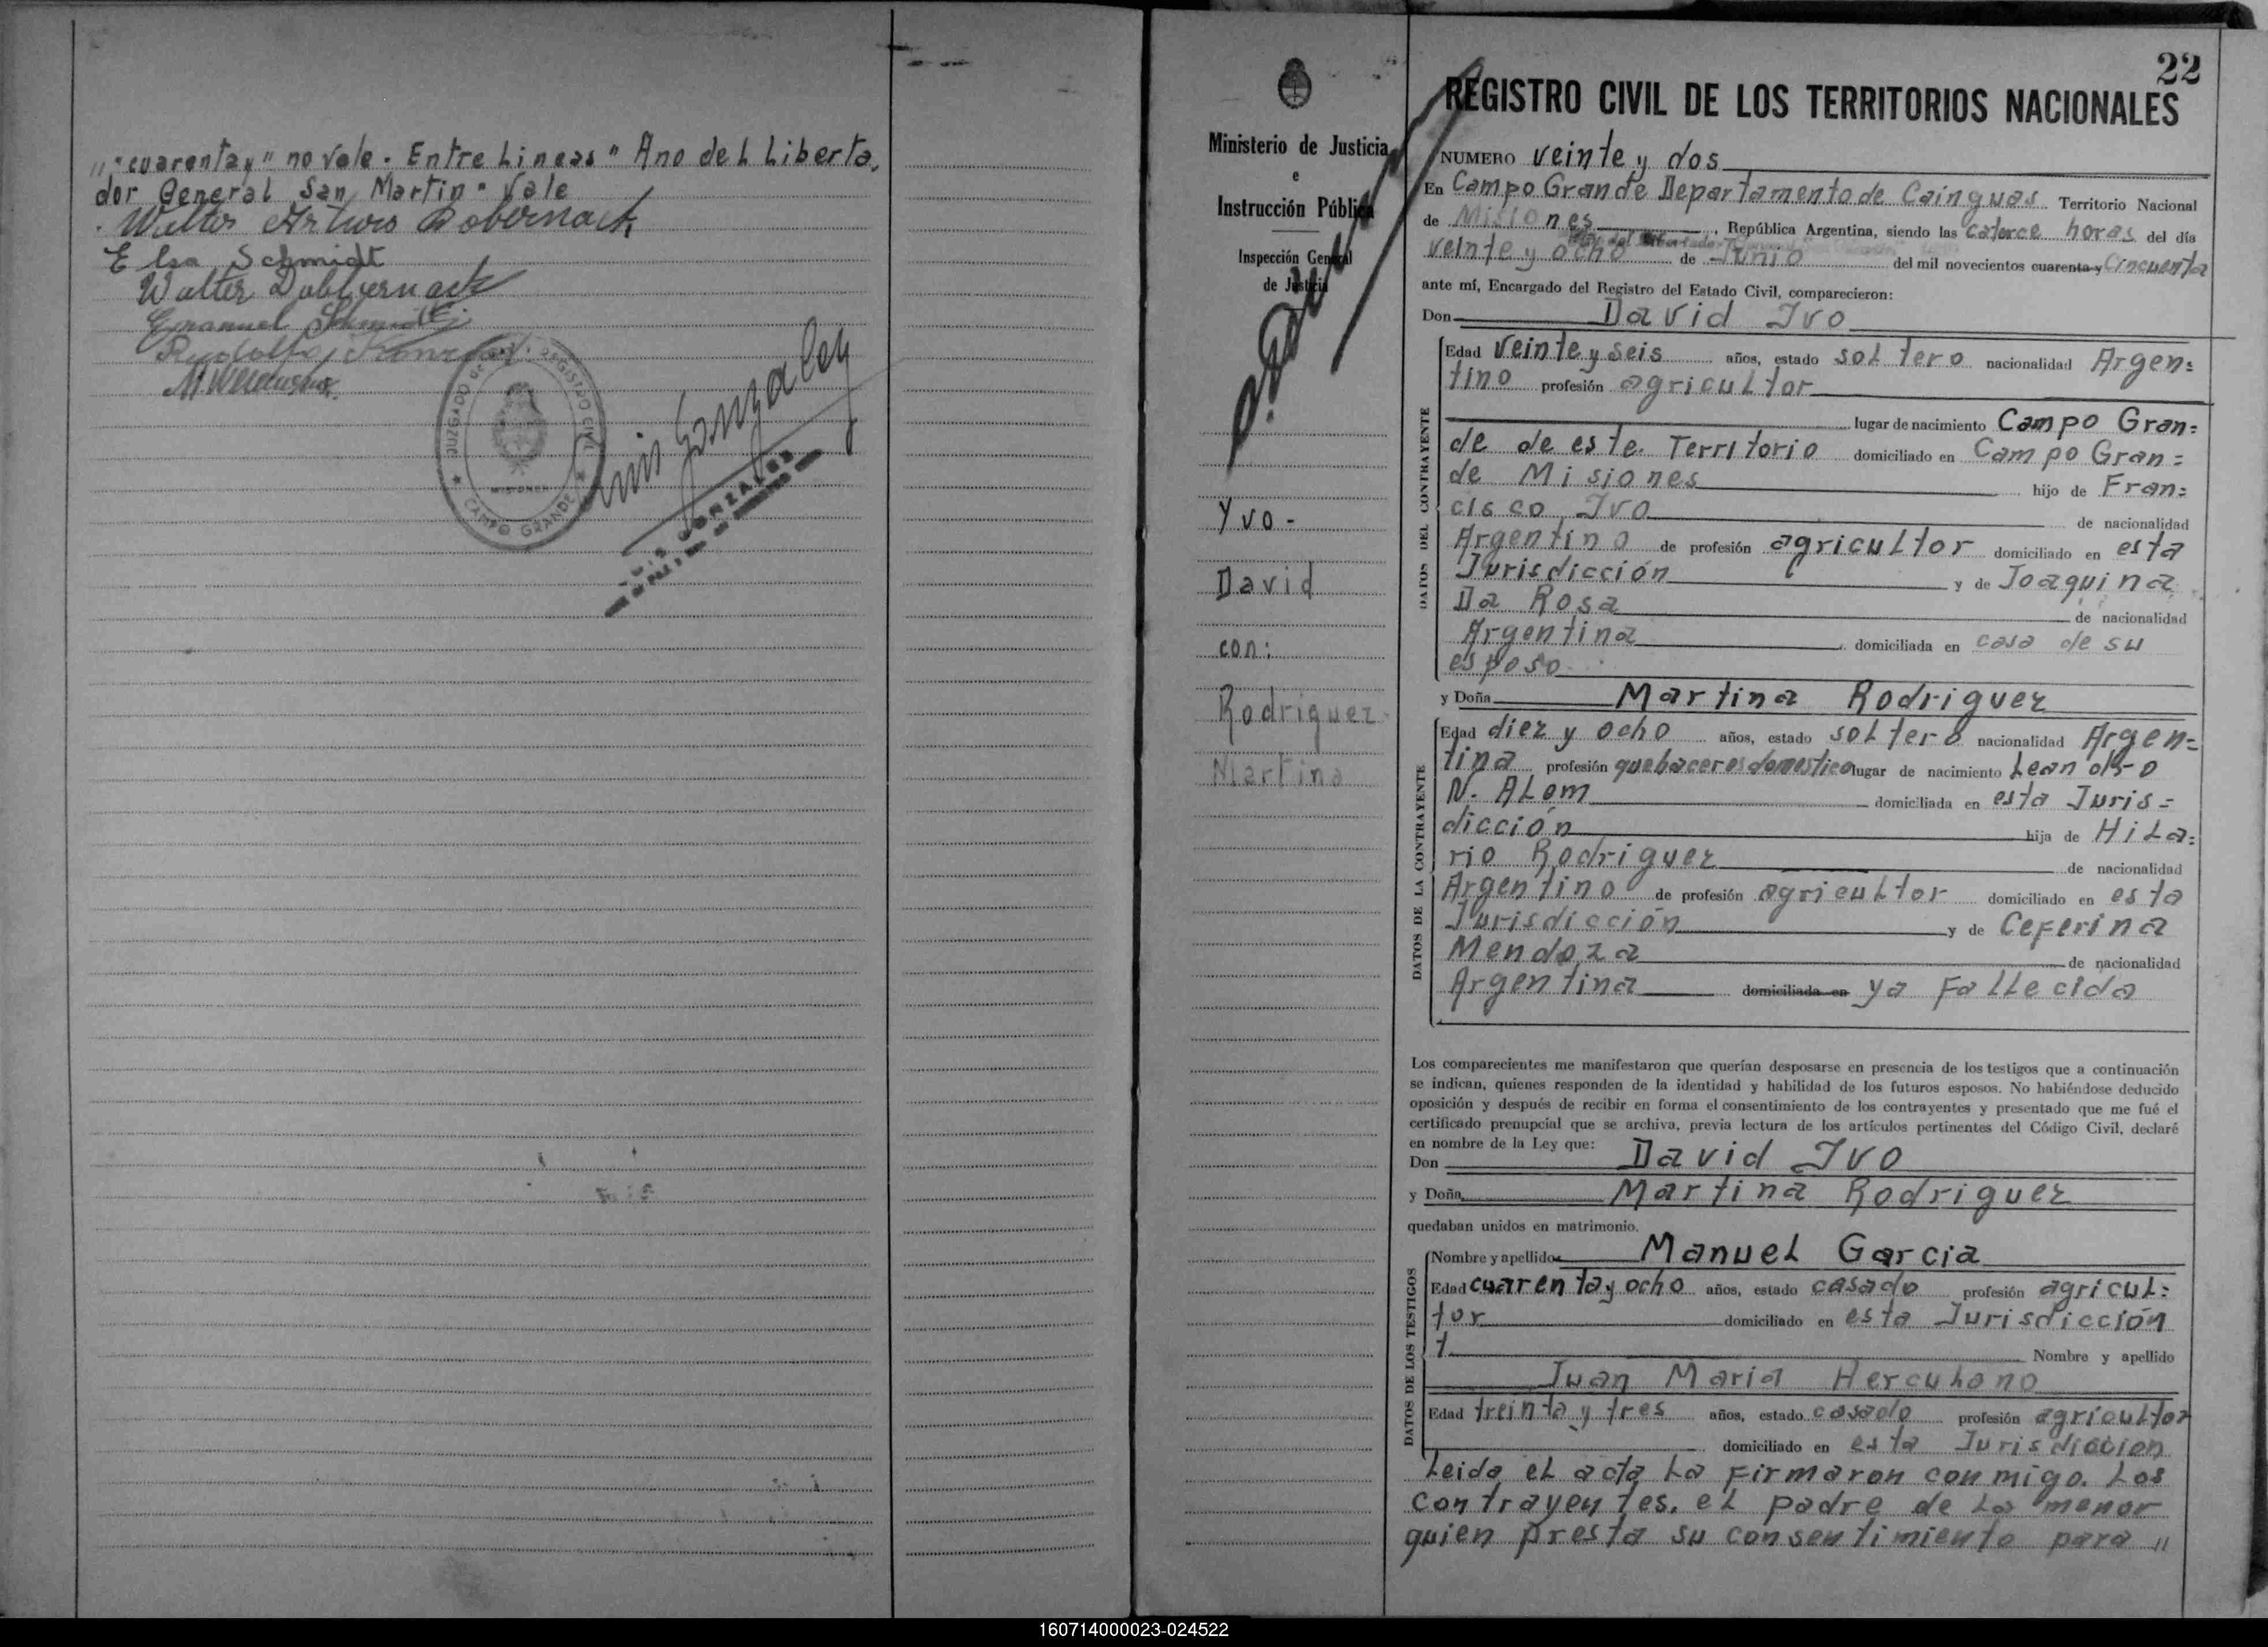 "cuarenta y" no vale. Entre Lineas "Ano del Liberta.
dor General San Martin" Vale
Walter Arturo Dobernack
Elsa Schmidt
Walter Dobbernack
Emanuel Schmidt
JUZGADO de REGISTRO CIVIL
MISIONES
CAMPO GRANDE
Luis Gonzalez
LUIS GONZALEZ
Ministerio de Justicia
e
Instrucción Pública
Inspección General
de Justicia
Yvo-
David
con:
Rodriguez
Martina
22
REGISTRO CIVIL DE LOS TERRITORIOS NACIONALES
NUMERO veinte y dos
En Campo Grande Departamento de Cainguas Territorio Nacional
de Misiones, República Argentina, siendo las catorce horas del día
Año del Libertador
veinte y ocho de Junio del mil novecientos cuarenta y Cincuenta
ante mí, Encargado del Registro del Estado Civil, comparecieron:
Don David Ivo
DATOS DEL CONTRAYENTE
Edad veinte y seis años, estado soltero nacionalidad Argen=
tino profesión agricultor
lugar de nacimiento Campo Gran=
de de este. Territorio domiciliado en Campo Gran=
de Misiones hijo de Fran=
cisco Ivo de nacionalidad
Argentino de profesión agricultor domiciliado en esta
Jurisdicción y de Joaquina
Da Rosa de nacionalidad
Argentina domiciliada en casa de su
esposo.
y Doña Martina Rodriguez
DATOS DE LA CONTRAYENTE
Edad diez y ocho años, estado soltera nacionalidad Argen=
tina profesión quehaceres domestico lugar de nacimiento Leandro
N. ALem domiciliada en esta Juris=
dicción hija de HiLa=
rio Rodriguez de nacionalidad
Argentino de profesión agricultor domiciliado en esta
Jurisdicción y de Ceferina
Mendoza de nacionalidad
Argentina domiciliada en ya Fallecida
Los comparecientes me manifestaron que querían desposarse en presencia de los testigos que a continuación
se indican, quienes responden de la identidad y habilidad de los futuros esposos. No habiéndose deducido
oposición y después de recibir en forma el consentimiento de los contrayentes y presentado que me fué el
certificado prenupcial que se archiva, previa lectura de los artículos pertinentes del Código Civil, declaré
en nombre de la Ley que:
Don David Ivo
y Doña Martina Rodriguez
quedaban unidos en matrimonio.
DATOS DE LOS TESTIGOS
Nombre y apellidos Manuel Garcia
Edad cuarenta y ocho años, estado casado profesión agricul=
tor domiciliado en esta Jurisdicción
y Nombre y apellido
Juan Maria Herculano
Edad treinta y tres años, estado casado profesión agricultor
domiciliado en esta Jurisdiccion
Leida el acta la firmaron conmigo. Los
contrayentes. el padre de la menor
quien presta su consentimiento para "
160714000023-024522